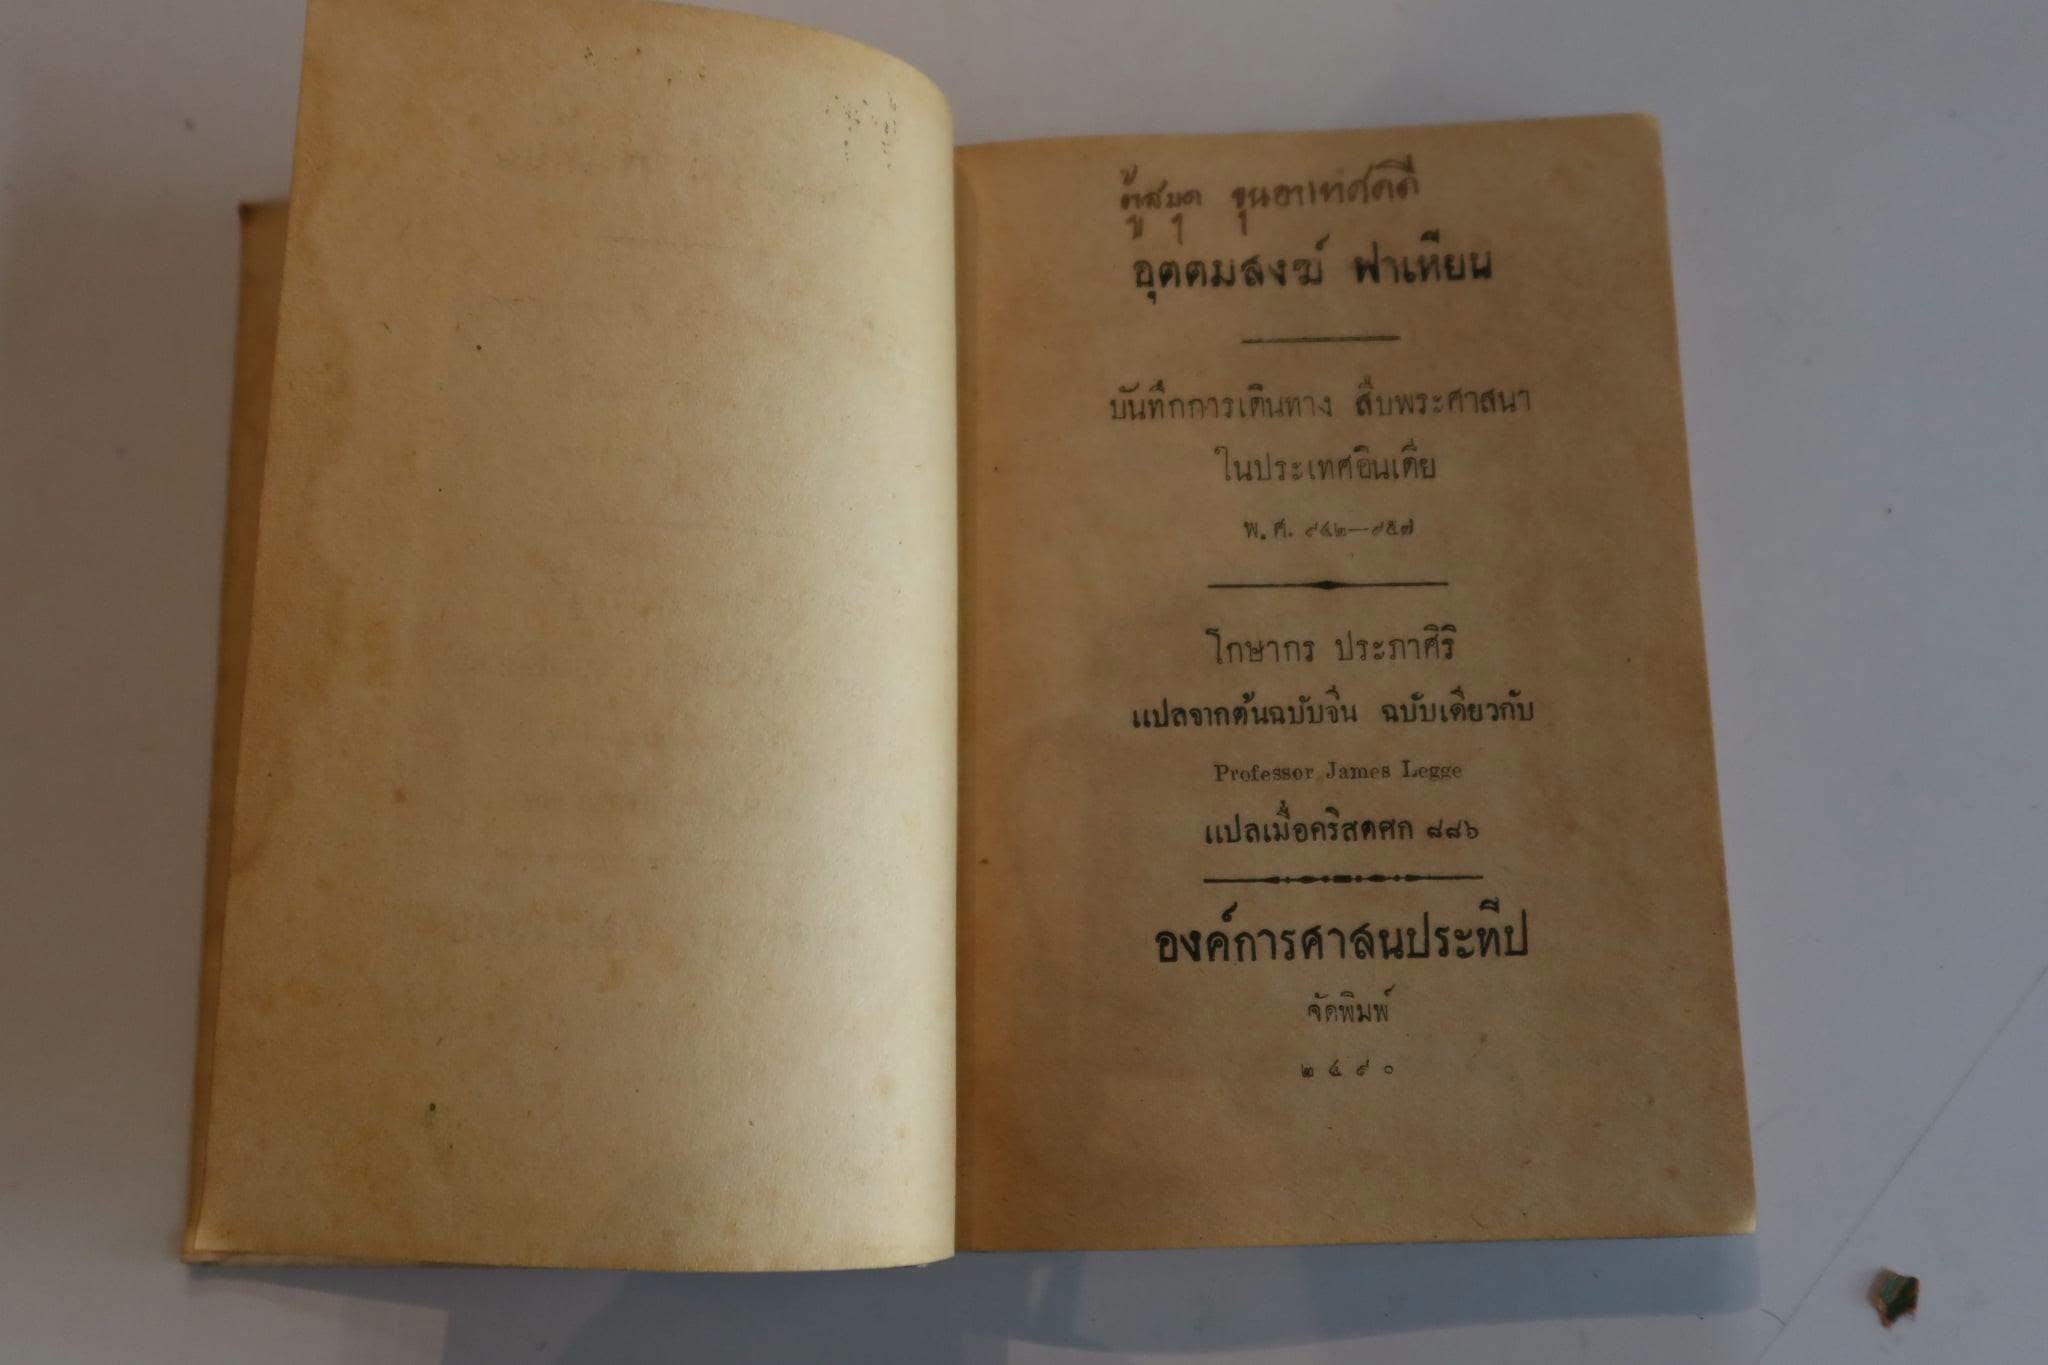 ตู้สมุด ขุนอาเทศคดี
อุตตมสงฆ์ ฟาเหียน
บันทึกการเดินทาง สืบพระศาสนา
ในประเทศอินเดีย
พ.ศ. ๙๔๒—๙๕๗
โกษากร ประภาศิริ
แปลจากต้นฉบับจีน ฉบับเดียวกับ
Professor James Legge
แปลเมื่อคริสตศก ๘๘๖
องค์การศาสนประทีป
จัดพิมพ์
๒๔๙๐